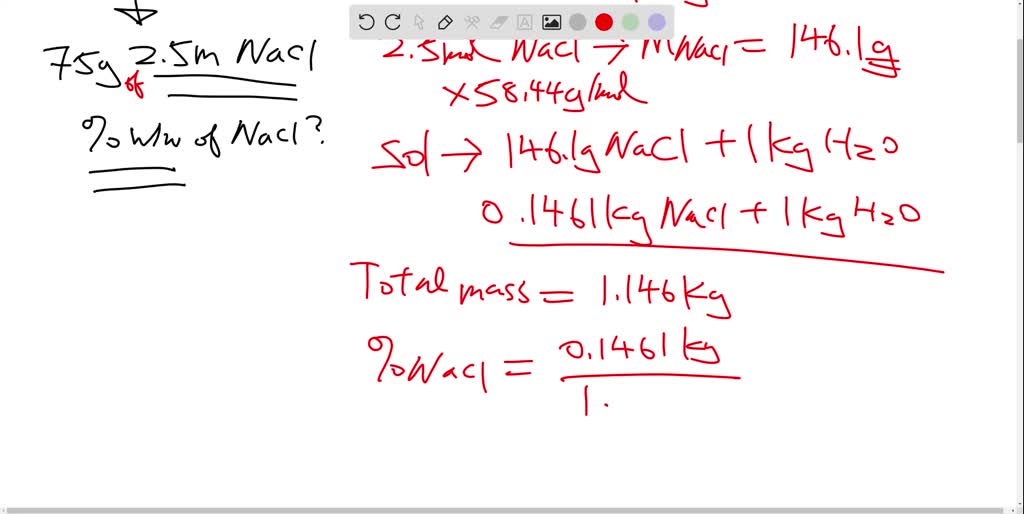 75g of 2.5m NaCl
% w/w of NaCl?
2.5mol NaCl → mNaCl = 146.1g
×58.44g/mol
Sol → 146.1g NaCl + 1kg H2O
0.1461kg NaCl + 1kg H2O
Total mass = 1.146kg
%NaCl = 0.1461kg
1.